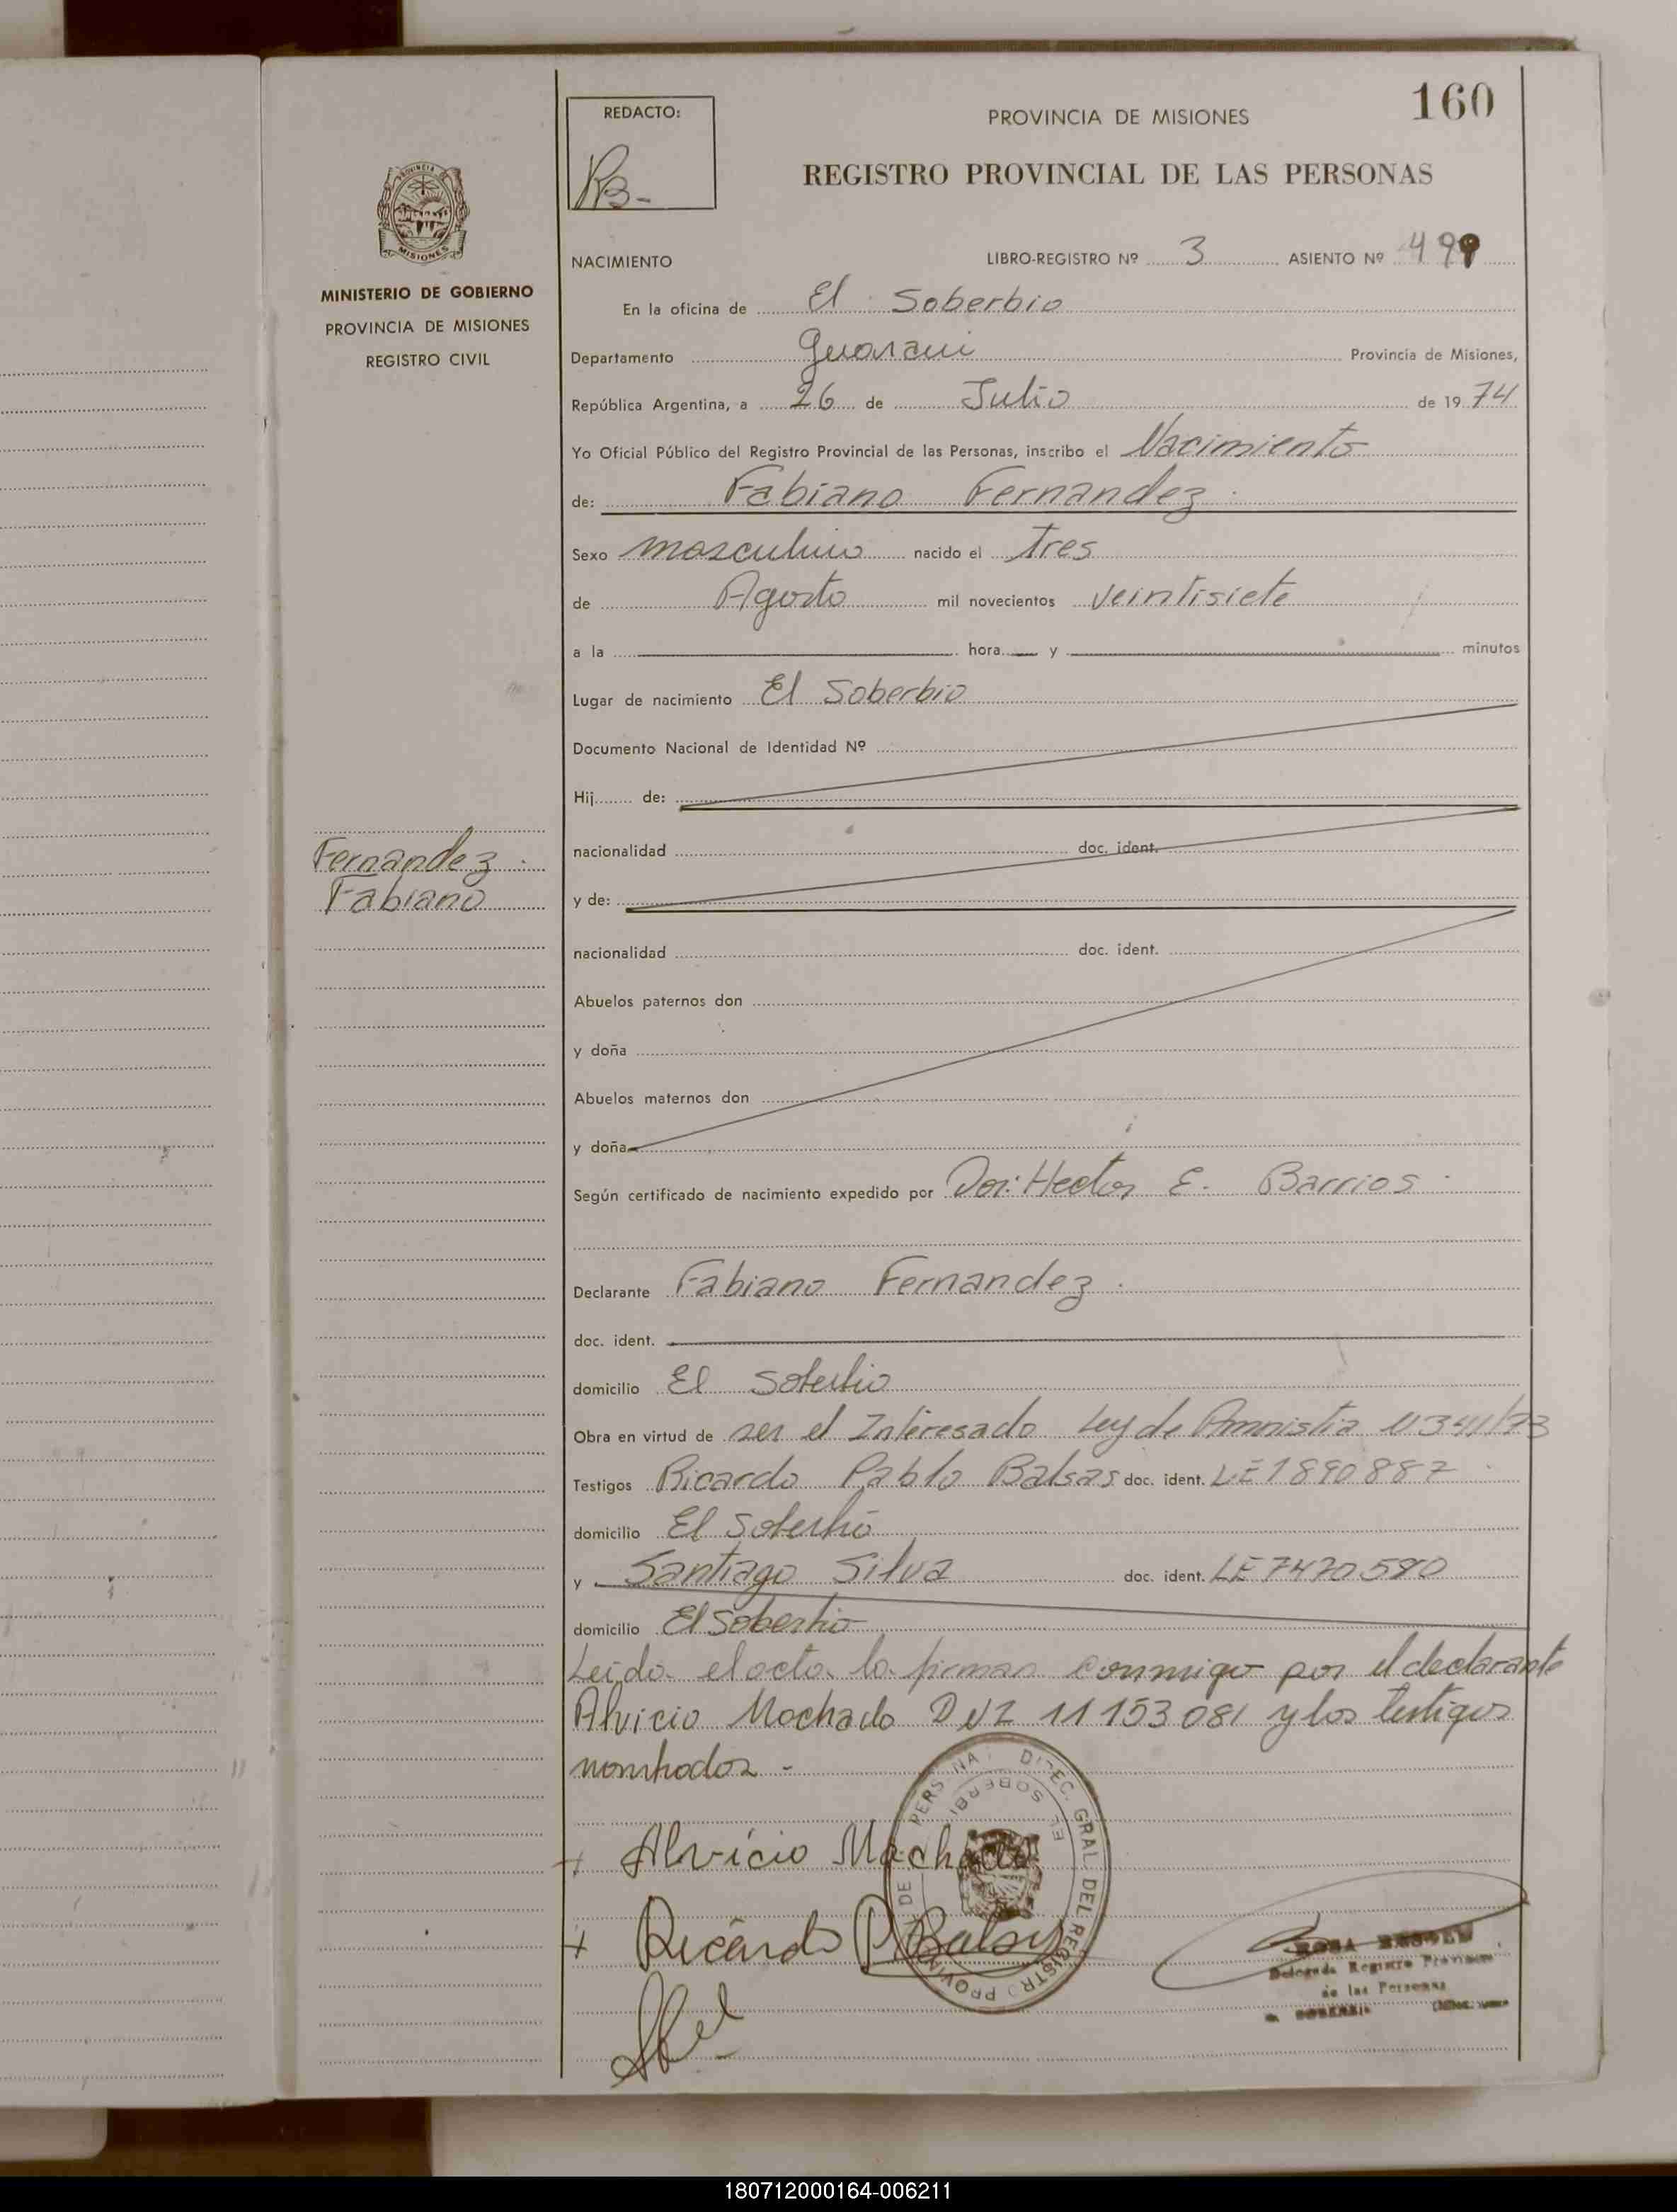 160
REDACTO:
PROVINCIA DE MISIONES
REGISTRO PROVINCIAL DE LAS PERSONAS
PROVINCIA DE
MISIONES
MINISTERIO DE GOBIERNO
PROVINCIA DE MISIONES
REGISTRO CIVIL
NACIMIENTO LIBRO-REGISTRO Nº 3 ASIENTO Nº 499
En la oficina de El Soberbio
Departamento Guarani Provincia de Misiones,
República Argentina, a 26 de Julio de 1974
Yo Oficial Público del Registro Provincial de las Personas, inscribo el Nacimiento
de: Fabiano Fernandez
Sexo masculino nacido el Tres
de Agosto mil novecientos veintisiete
a la hora y minutos
Lugar de nacimiento El Soberbio
Documento Nacional de Identidad Nº
Hij de:
nacionalidad doc. ident.
y de:
nacionalidad doc. ident.
Fernandez
Fabiano
Abuelos paternos don
y doña
Abuelos maternos don
y doña
Según certificado de nacimiento expedido por Dor: Hector E. Barrios
Declarante Fabiano Fernandez
doc. ident.
domicilio El Soberbio
Obra en virtud de ser el Interesado Ley de Amnistia
Testigos Ricardo Pablo Balsas doc. ident. LE 1890887
domicilio El Soberbio
y Santiago Silva doc. ident. LE 7470580
domicilio El Soberbio
Leida el acta la firman conmigo por el declarante
Alvicio Machado DNI 11153081 y los testigos
nombrados -
DIREC. GRAL. DEL REGISTRO PROVIN. DE PERSONA
EL SOBERBI
+ Alvicio Machado
+ Ricardo P. Balsas
ROSA
Delegada Registro Provincial
de las Personas
180712000164-006211